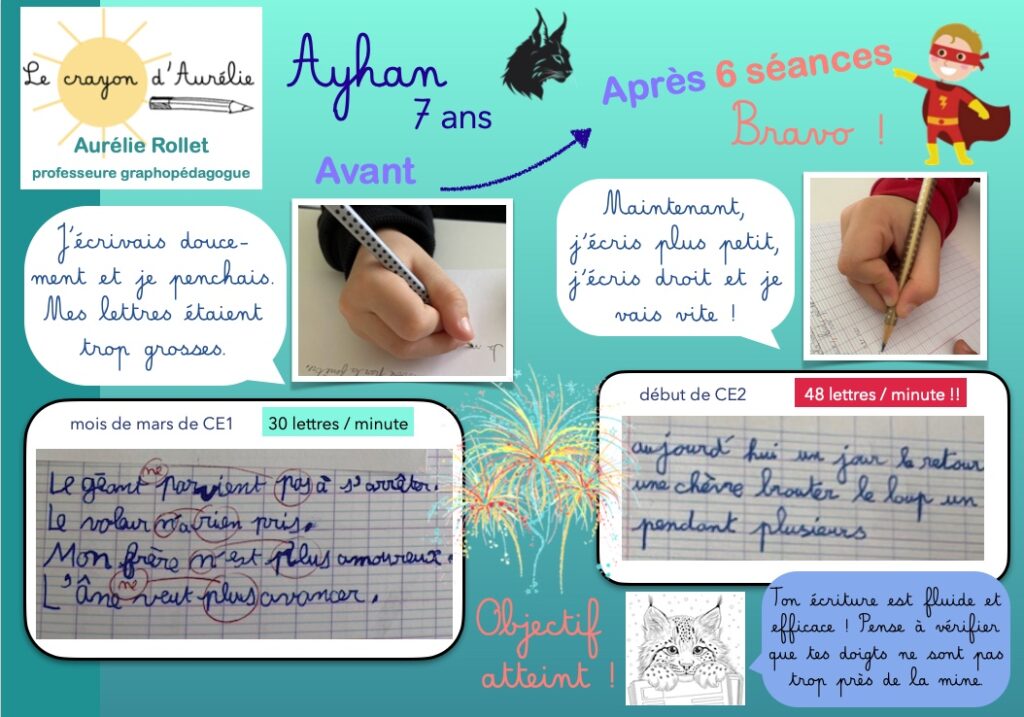 Le crayon d'Aurélie
Aurélie Rollet
professeure graphopédagogue
Ayhan
7 ans
Avant
Après 6 séances
Bravo !
J'écrivais douce-
ment et je penchais.
Mes lettres étaient
trop grosses.
Maintenant,
j'écris plus petit,
j'écris droit et je
vais vite !
mois de mars de CE1
30 lettres / minute
ne
Le géant parvient pas à s'arrêter.
Le voleur n'a rien pris.
Mon frère n'est plus amoureux.
ne
L'Âne veut plus avancer.
début de CE2
48 lettres / minute !!
aujourd'hui un jour le retour
une chèvre brouter le loup un
pendant plusieurs
Objectif
atteint !
Ton écriture est fluide et
efficace ! Pense à vérifier
que tes doigts ne sont pas
trop près de la mine.